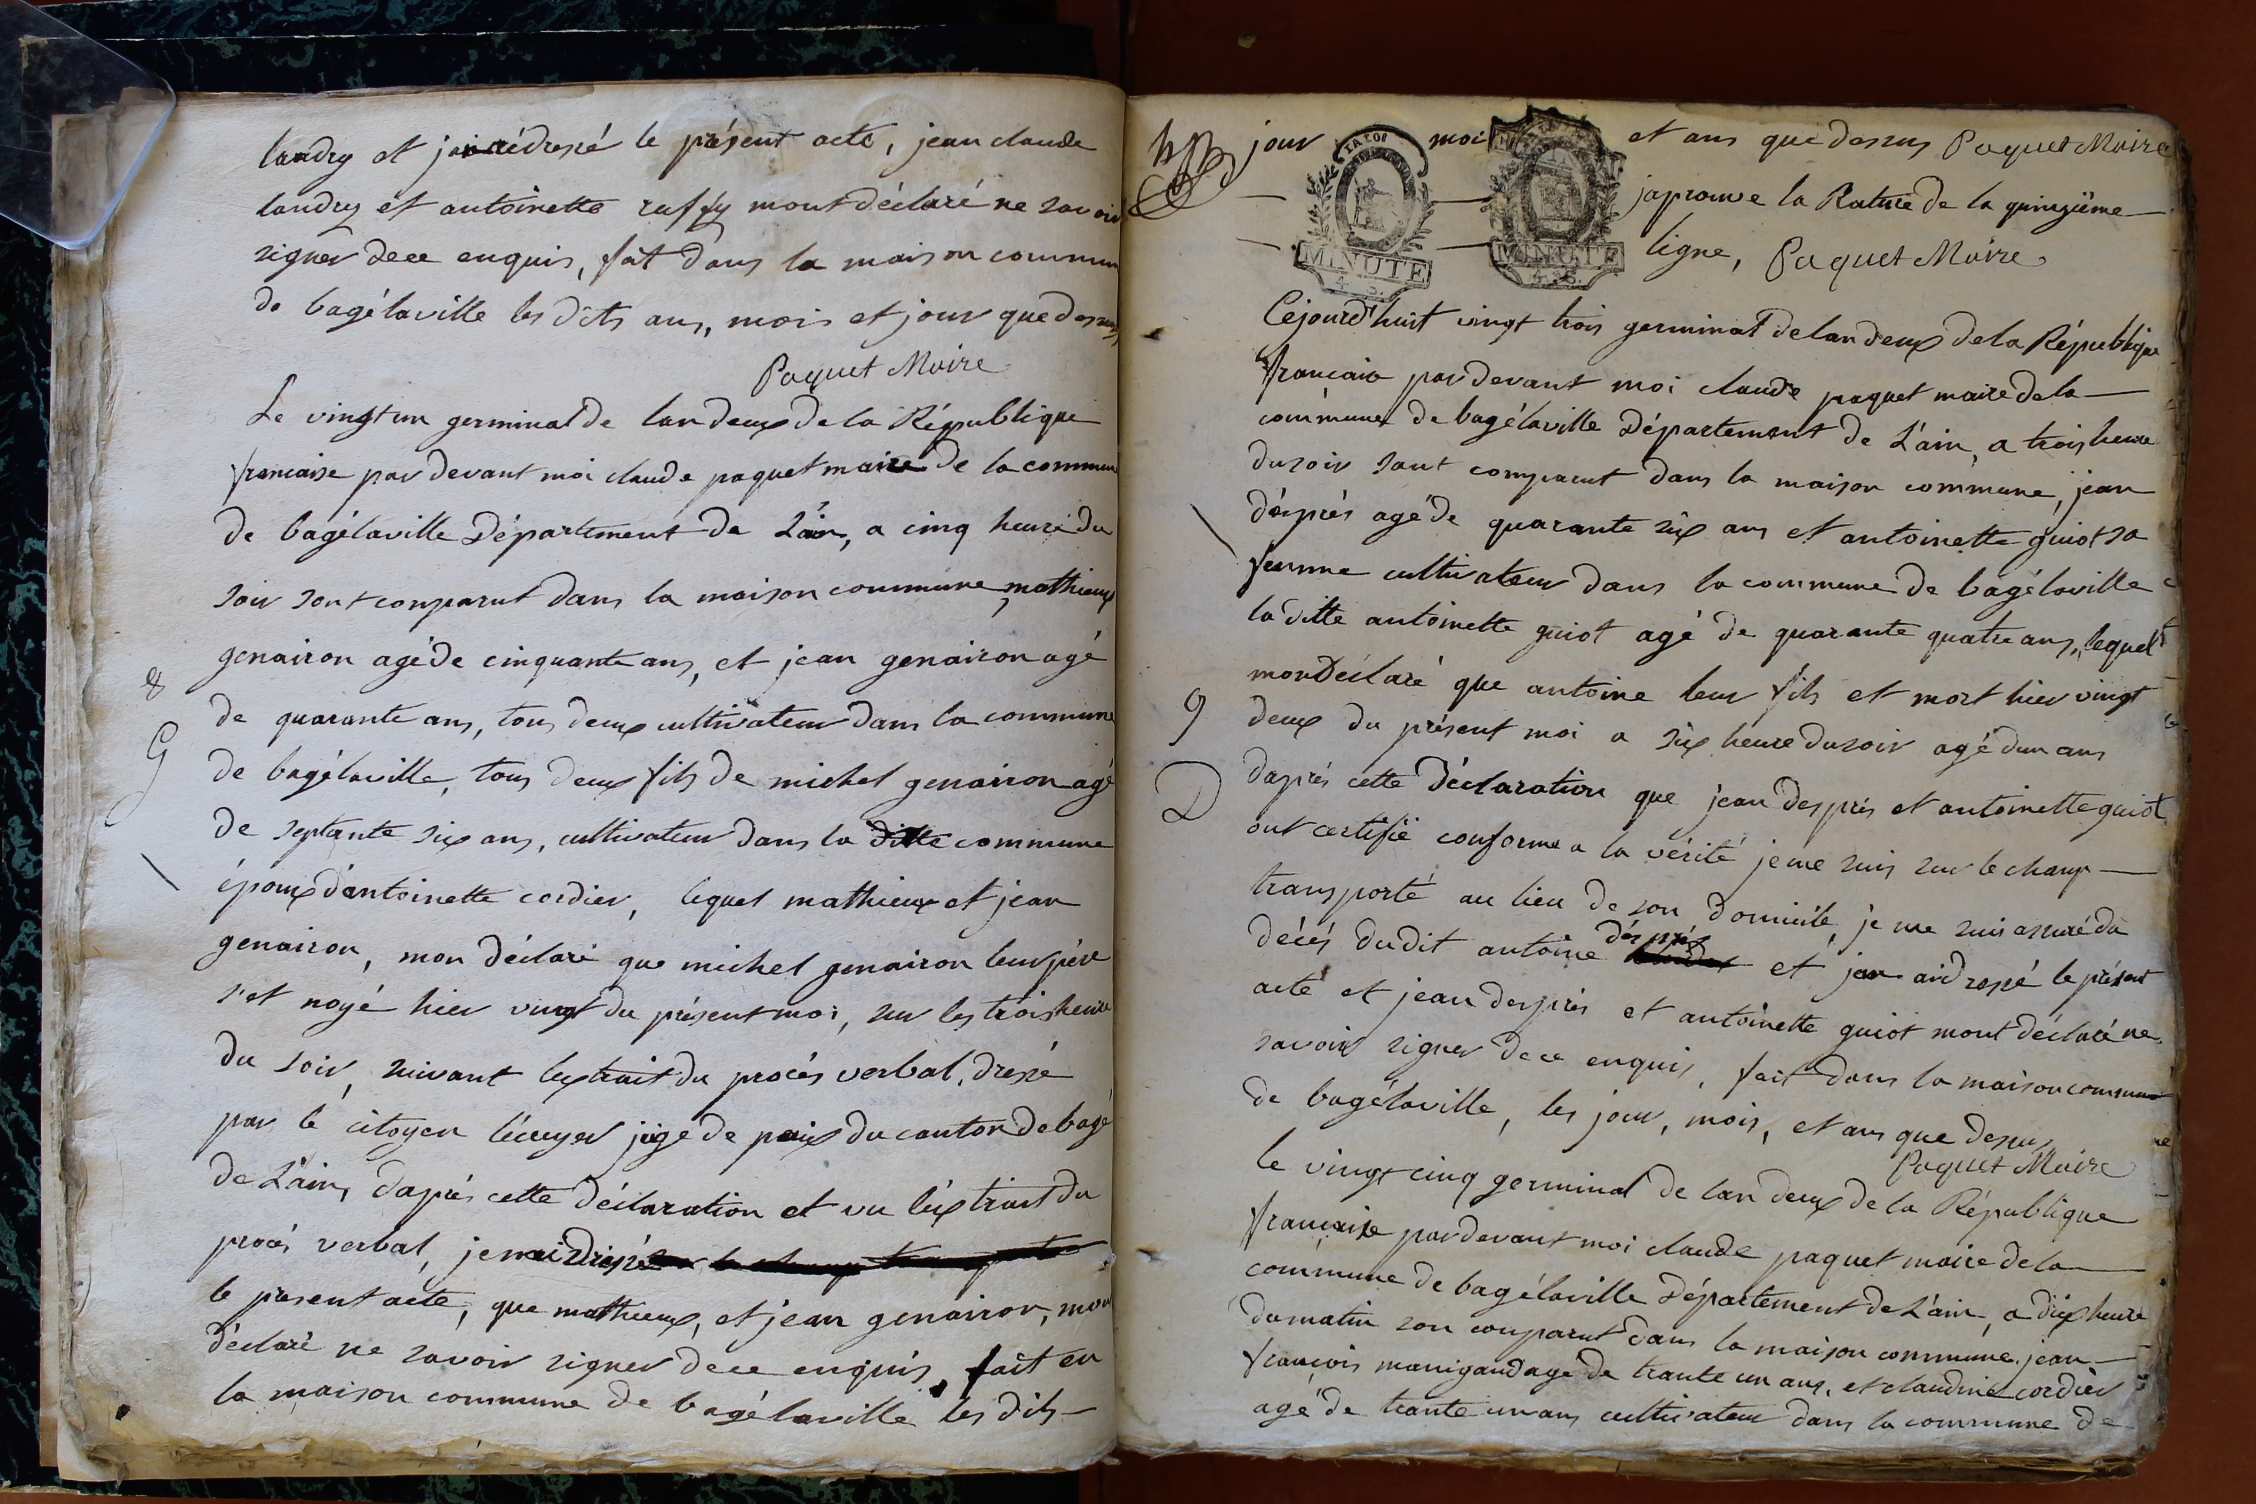 landry et jai rédressé le présent acte, jean claude
landry et antoinette ruffy mont déclaré ne savoir
signer de ce enquis, fait dans la maison commun
de bagélaville les dits ans, mois et jour que dessus
Paquet Maire
Le vingt un germinal de lan deux de la République
francaise par devant moi claude paquet maire de la commun
de bagélaville Département de L'ain, a cinq heure du
soir sont comparut dans la maison commune, mathieux
genairon agé de cinquante ans, et jean genairon agé
&
de quarante ans, tous deux cultivateur dans la commune
G
de bagélaville, tous deux fils de michel genairon agé
de septante six ans, cultivateur dans la ditte commune
époux d'antoinette cordier, lequel mathieux et jean
genairon, mon déclaré que michel genairon leur père
s'et noyé hier vingt du présent moi, sur les trois heure
du soir, suivant lextrait du procés verbal, dressé
par le citoyen lécuyer juge de paix du canton de bagé
de L'ain, daprés cette déclaration et vu léxtrait du
procés verbal, jen ai dressé
le present acte, que mathieux, et jean genairon, mon
déclaré ne savoir signer de ce enquis, fait en
la maison commune de bagélaville les dits
jour moi et ans que dessus Paquet Maire
MINUTE MINUTE
4. S. 4. S.
japrouve la Rature de la quinzième
ligne, Paquet Maire
Cejourd'huit vingt trois germinal de lan deux de la République
francaise par devant moi claude paquet maire de la
commune de bagélaville Département de L'ain, a trois heure
du soir sont comparut dans la maison commune, jean
désprés agé de quarante six ans et antoinette guiot sa
femme cultivateur dans la commune de bagélaville
la ditte antoinette guiot agé de quarante quatre ans, lequel
mon déclaré que antoine leur fils et mort hier vingt
9
deux du présent moi a six heure du soir agé dun ans
D
daprés cette déclaration que jean després et antoinette guiot
ont certifié conforme a la vérité je me suis sur le champ
transporté au lieu de son domicile, je me suis assuré du
décés dudit antoine désprés et jen ai dressé le présent
acte et jean després et antoinette guiot mont déclaré ne
savoir signer de ce enquis, fait dans la maison commune
de bagélaville, les jour, mois, et ans que dessus
Paquet Maire
le vingt cinq germinal de lan deux de la République
francaise par devant moi claude paquet maire de la
commune de bagélaville Département de L'ain, a dix heure
du matin son comparut dans la maison commune, jean
françois manigand agé de trante un ans, et claudine cordier
agé de trante un ans cultivateur dans la commune de